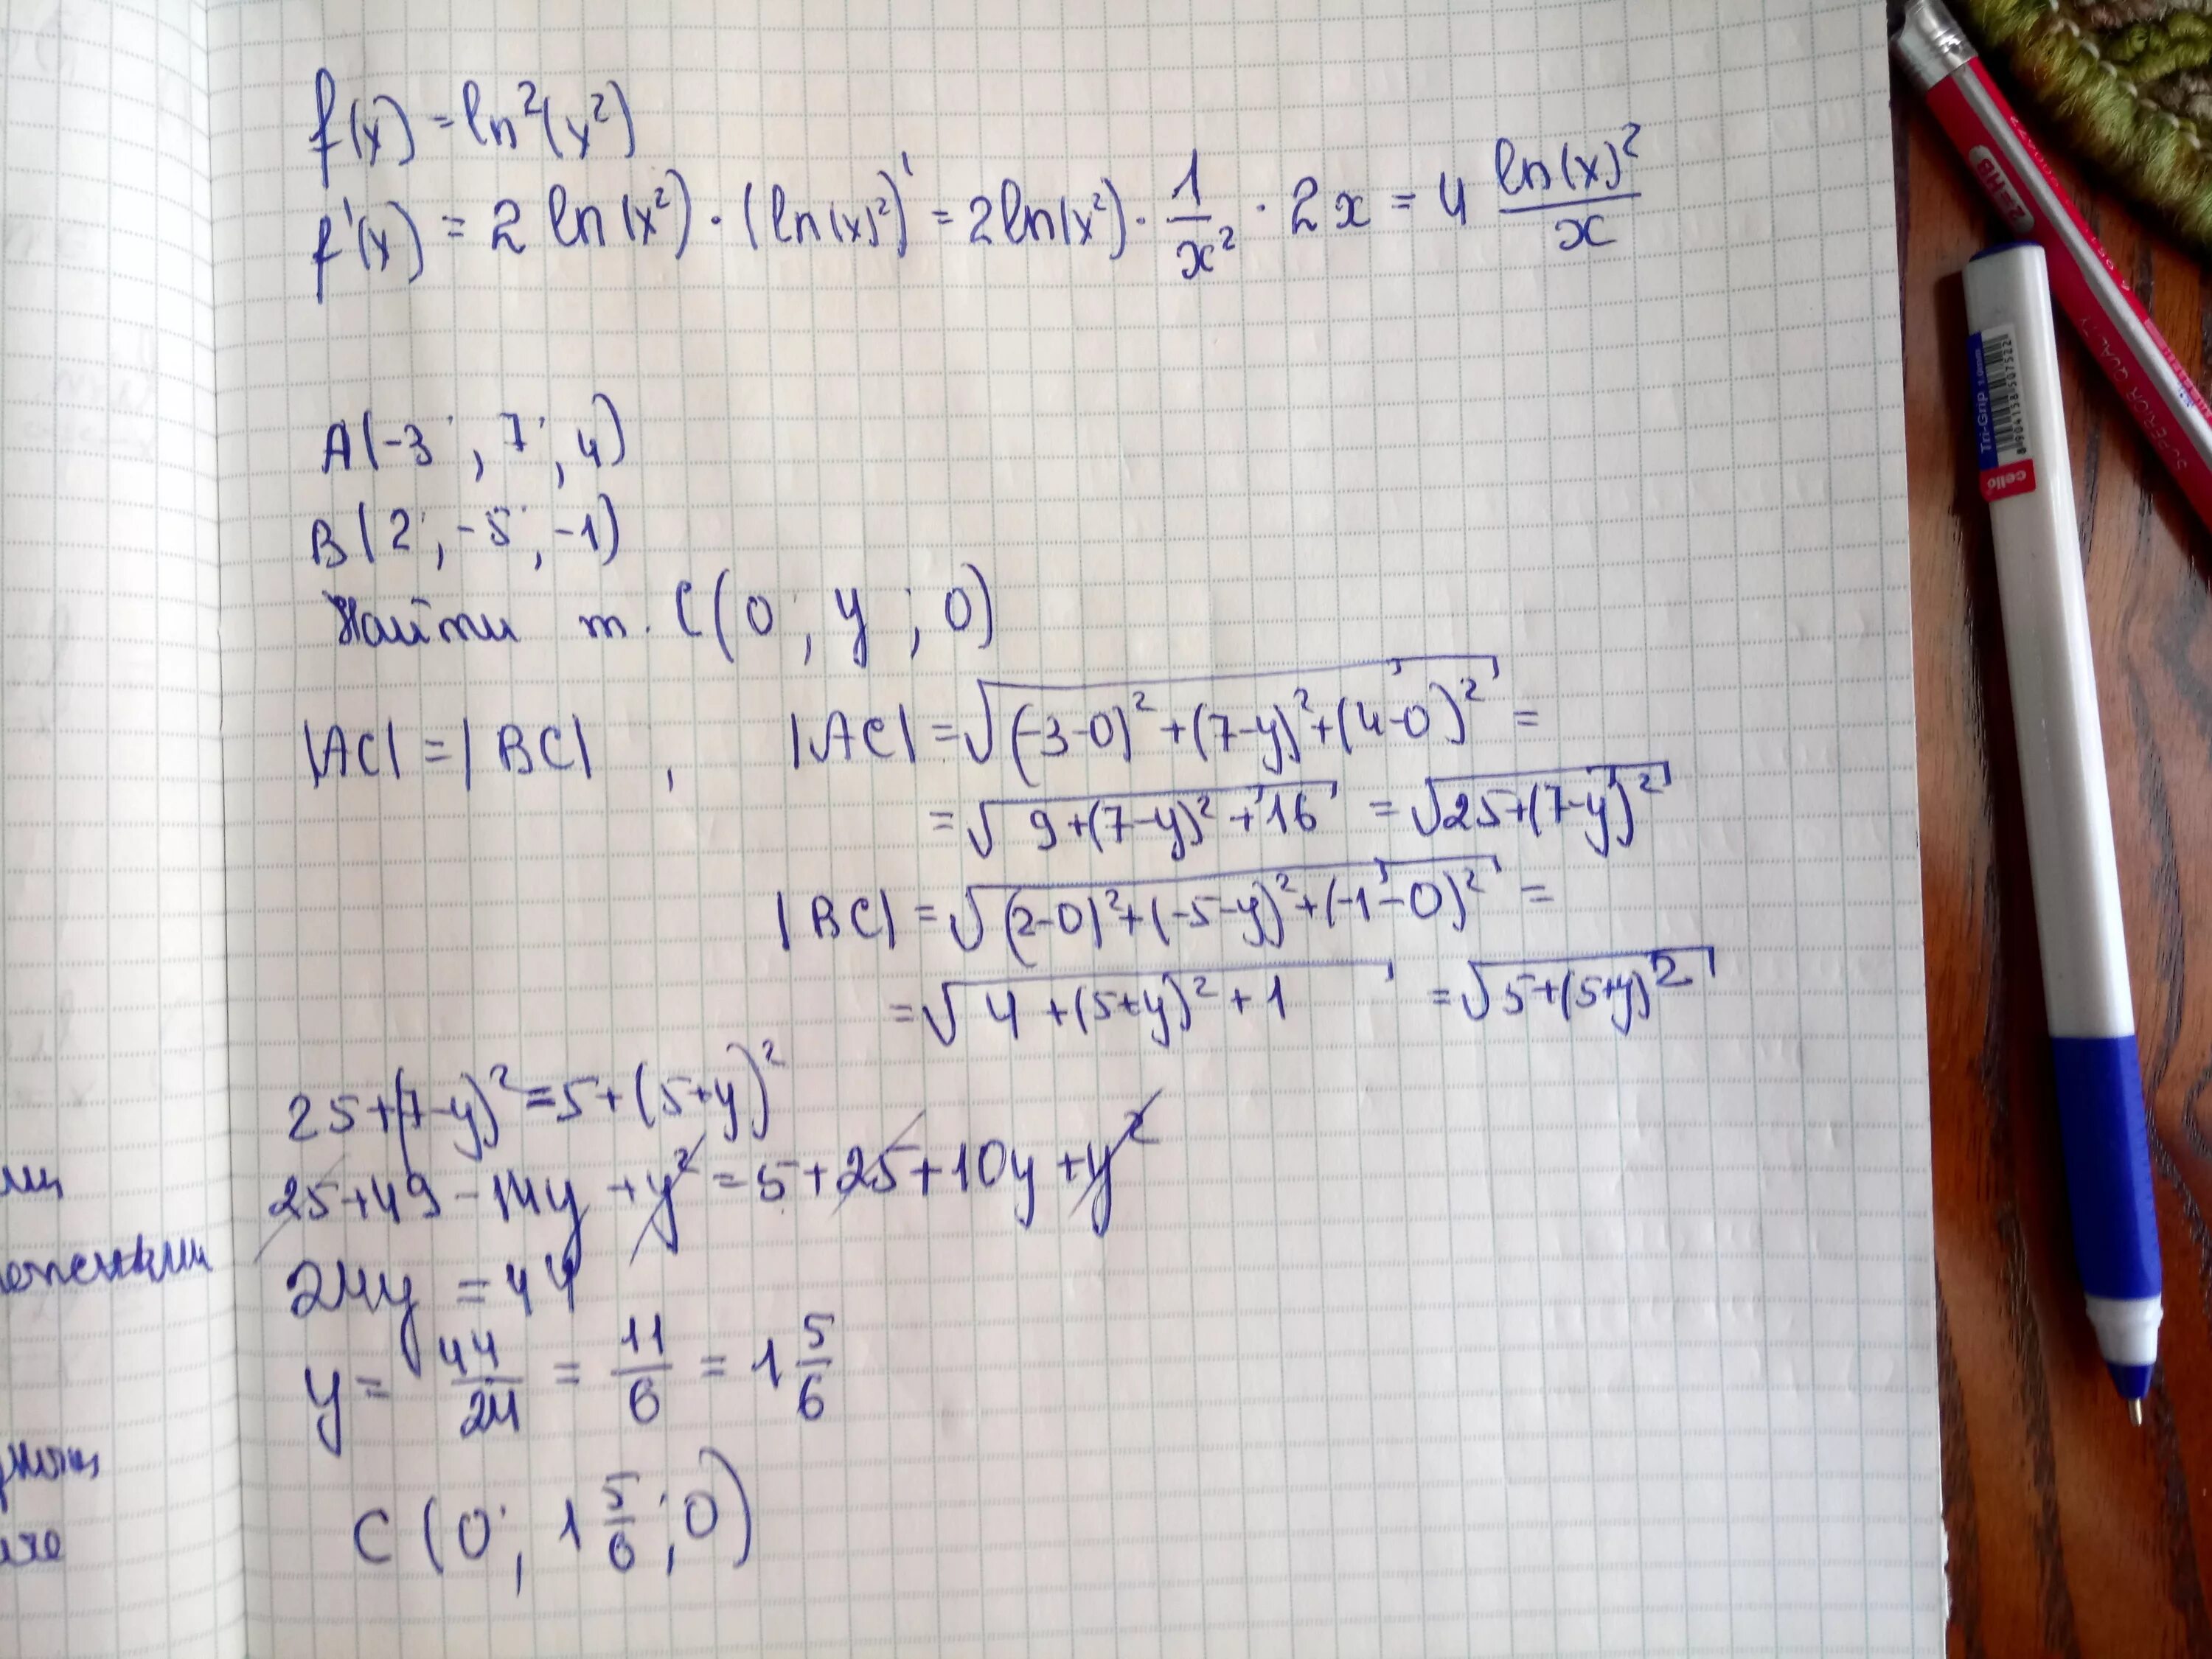 f(x) = ln²(x²)
f'(x) = 2 ln(x²) · (ln(x)²)' = 2ln(x²) · 1/x² · 2x = 4 ln(x)²/x
A(-3; 7; 4)
B(2; -5; -1)
Найти т. C(0; y; 0)
|AC| = |BC| , |AC| = √((-3-0)²+(7-y)²+(4-0)²) =
= √(9+(7-y)²+16) = √(25+(7-y)²)
|BC| = √((2-0)²+(-5-y)²+(-1-0)²) =
= √(4+(5+y)²+1) = √(5+(5+y)²)
25+(7-y)²=5+(5+y)²
25+49-14y+y²=5+25+10y+y²
24y = 44
y = 44/24 = 11/6 = 1 5/6
C (0; 1 5/6; 0)
2=HB
SUPERIOR QUALITY
Tri-Grip 1.0mm
cello
8 904158 507522